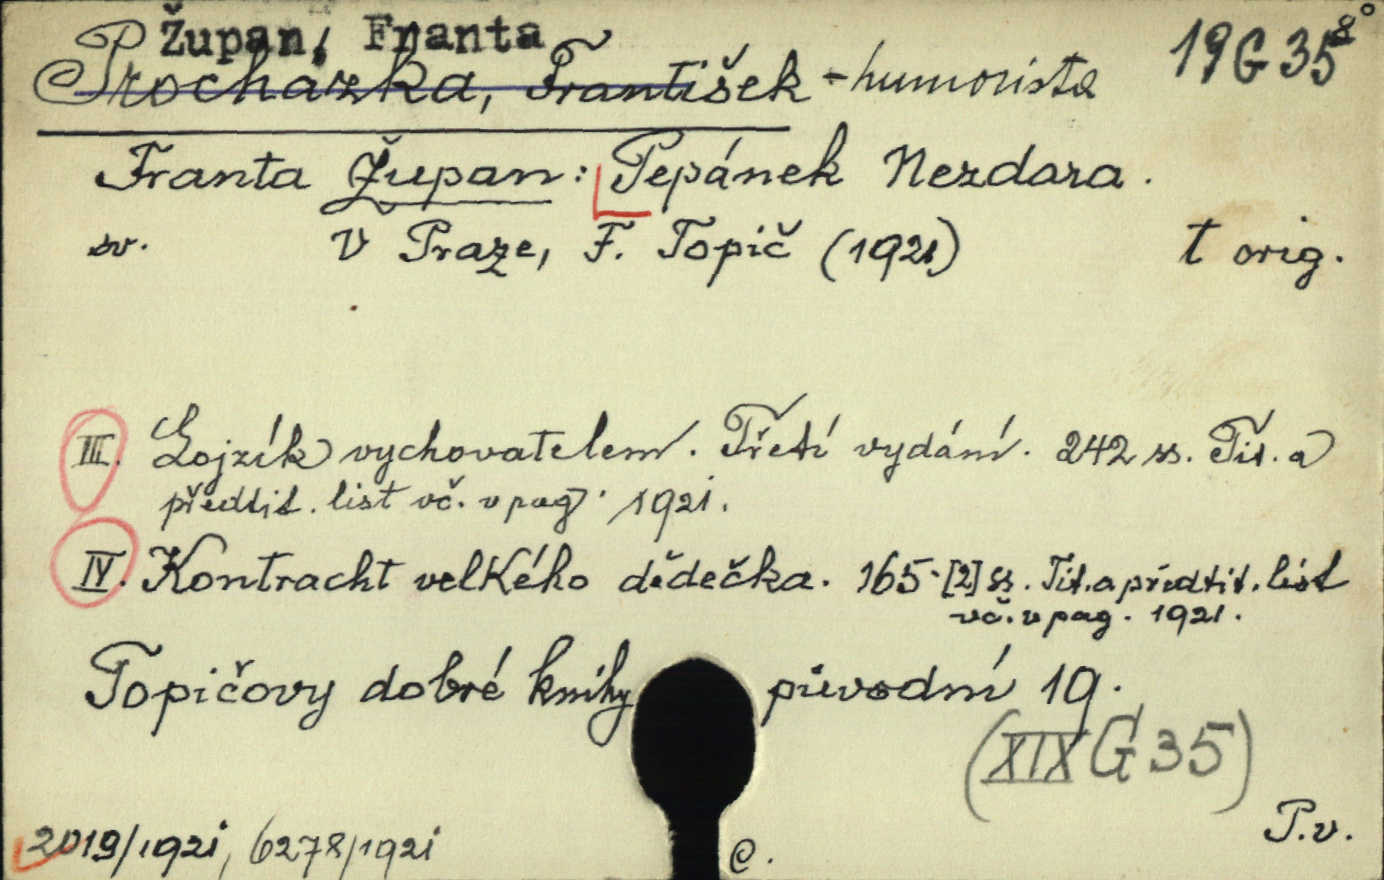 Župan, Franta
Procházka, František - humorista 19 G 35 8°
Franta Župan: Pepánek Nezdara.
sv. V Praze, F. Topič (1921) t orig.
III. Lojzík vychovatelem. Třetí vydání. 242 ss. Tit. a
předtit. list vč. v pag. 1921.
IV. Kontracht velkého dědečka. 165.[2] ss. Tit. a předtit. list
vč. v pag. 1921.
Topičovy dobré knihy původní 19.
(XIX G 35)
P.v.
2019/1921, 6278/1921 C.